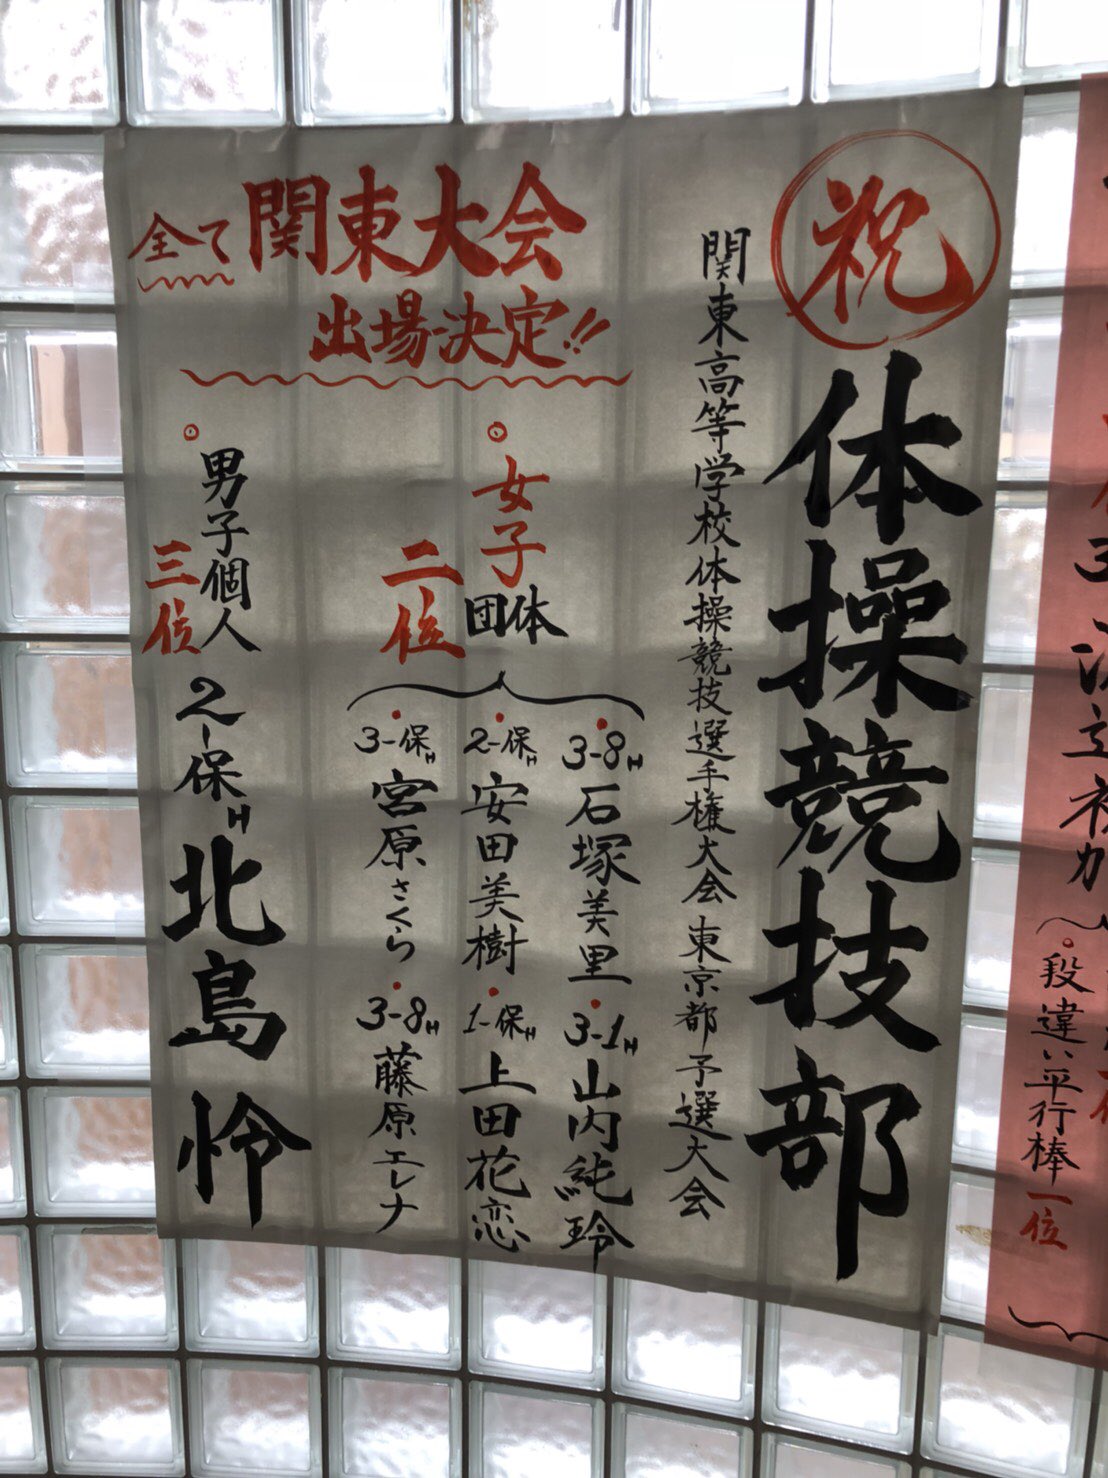 祝
体操競技部
関東高等学校体操競技選手権大会 東京都予選大会
全て関東大会
出場決定!!
女子団体
二位
3-8H 石塚美里
3-1H 山内純玲
2-保H 安田美樹
1-保H 上田花恋
3-保H 宮原さくら
3-8H 藤原エレナ
男子個人
三位
2-保H 北島怜
段違い平行棒 一位